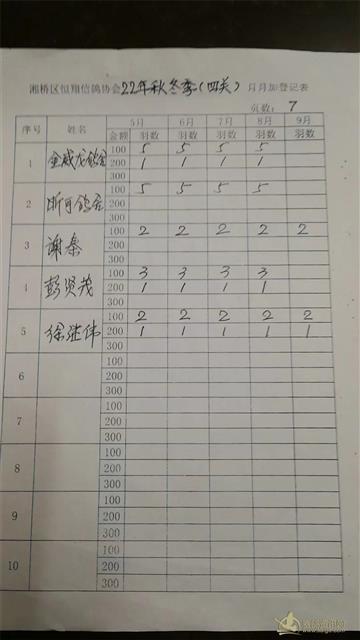 湘桥区恒翔信鸽协会22年秋冬季(四关)月月加登记表
页数：7
序号 姓名 5月 6月 7月 8月 9月
金额 羽数 羽数 羽数 羽数 羽数
1 金威龙鸽舍 100 5 5 5 5
200 1 1 1 1
300
2 昕可鸽舍 100 5 5 5 5
200
300
3 谢秦 100 2 2 2 2 2
200
300
4 彭贤茂 100 3 3 3 3
200 1 1 1 1
300
5 徐继伟 100 2 2 2 2 2
200 1 1 1 1 1
300
6 100
200
300
7 100
200
300
8 100
200
300
9 100
200
300
10 100
200
300